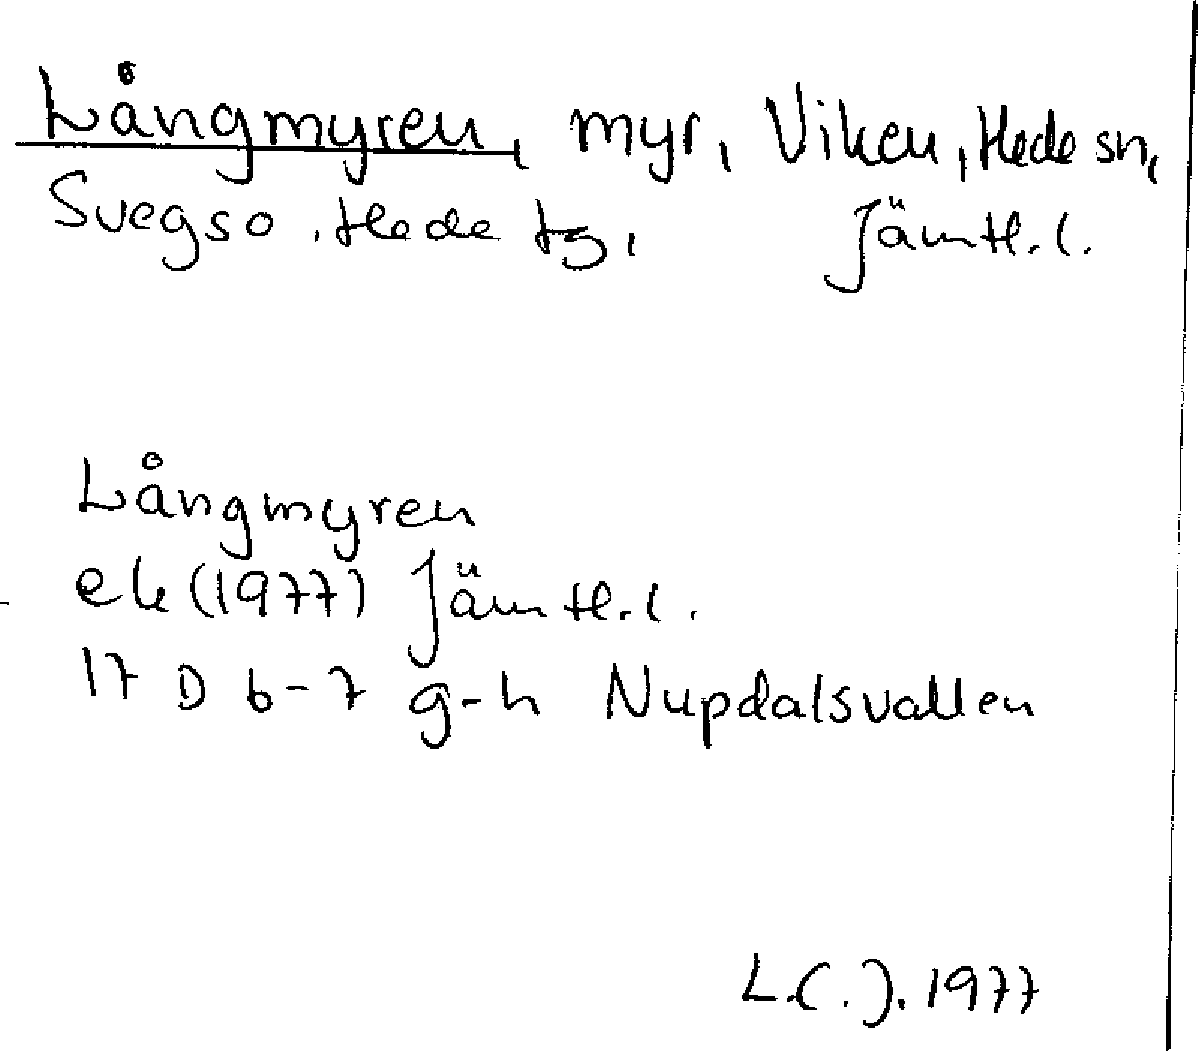 Långmyren, myr, Viken, Hede sn,
Svegs o. Hede tg, Jämtl. l.
Långmyren
ek (1977) Jämtl. l.
17 D 6-7 g-h Nupdalsvallen
L.C.J. 1977